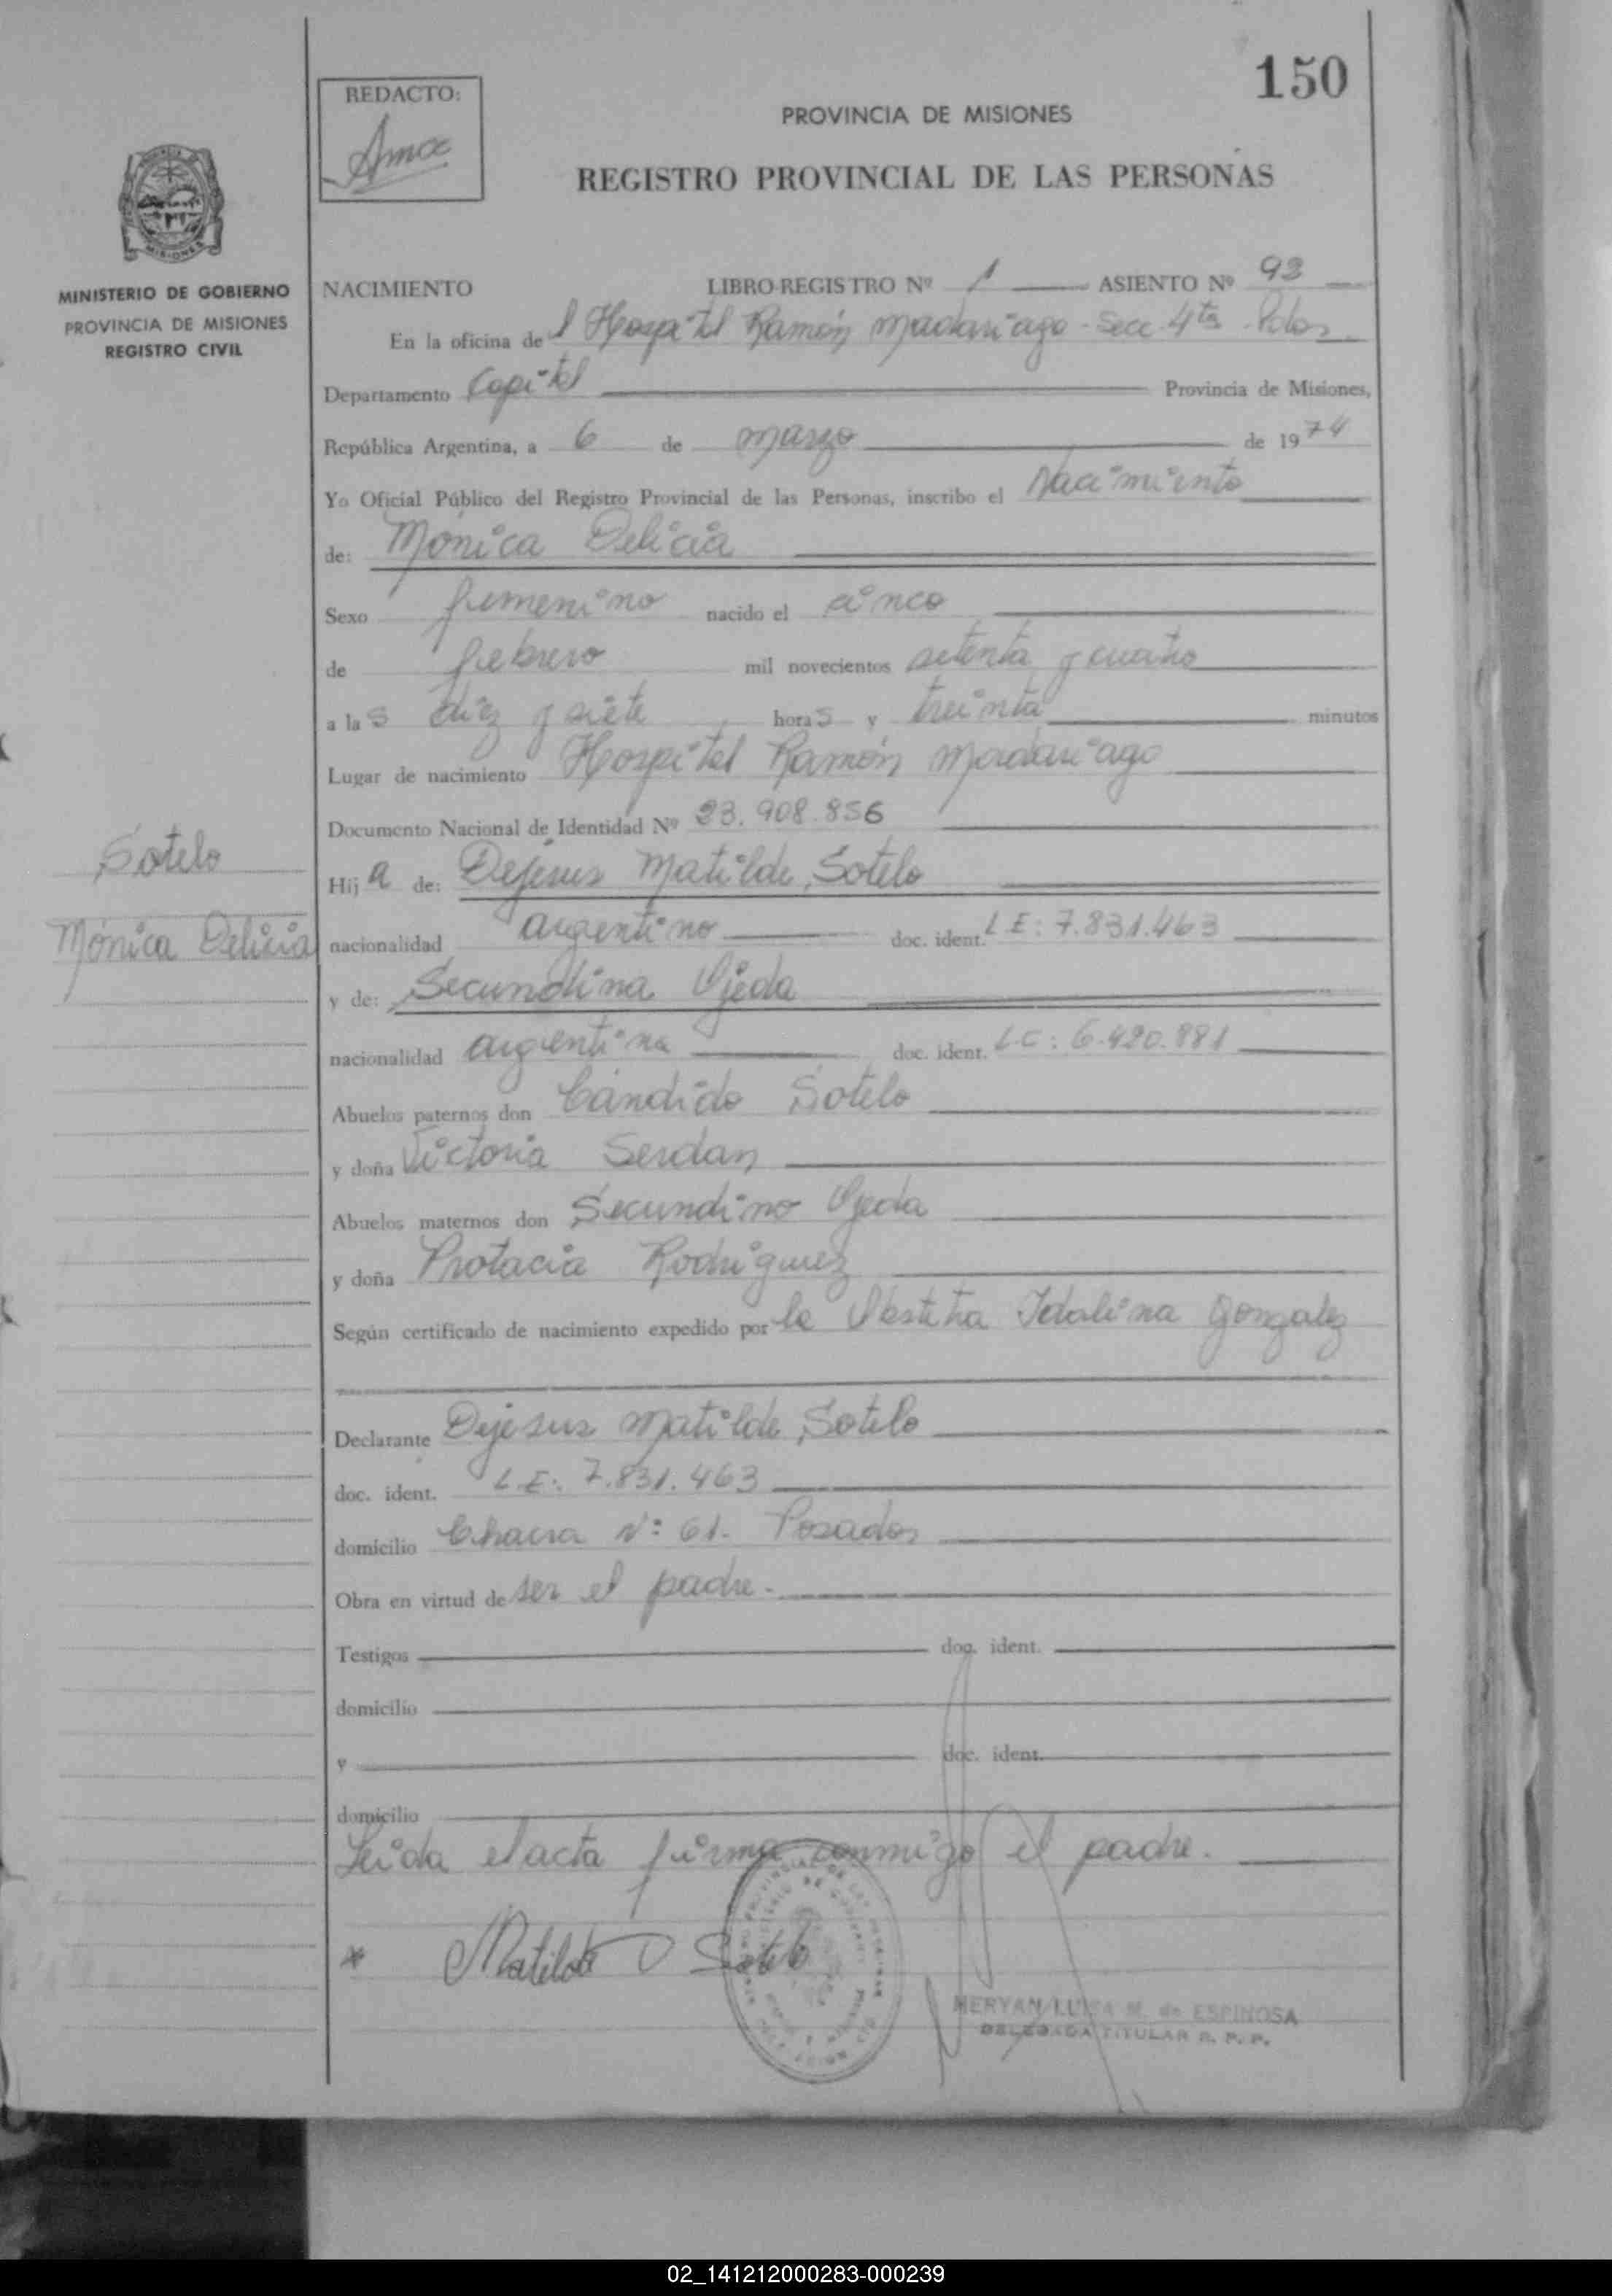 150
REDACTO:
PROVINCIA DE MISIONES
REGISTRO PROVINCIAL DE LAS PERSONAS
MISIONES
MINISTERIO DE GOBIERNO
PROVINCIA DE MISIONES
REGISTRO CIVIL
NACIMIENTO LIBRO-REGISTRO Nº 1 ASIENTO Nº 93
En la oficina del Hospital Ramón Madariaga - Secc. 4ta - Pdas.
Departamento Capital Provincia de Misiones,
República Argentina, a 6 de marzo de 1974
Yo Oficial Público del Registro Provincial de las Personas, inscribo el Nacimiento
de: Mónica Delicia
Sexo femenino nacido el cinco
de febrero mil novecientos setenta y cuatro
a las diez y siete horas y treinta minutos
Lugar de nacimiento Hospital Ramón Madariaga
Documento Nacional de Identidad Nº 23.908.856
Sotelo
Hija de: Dejesus Matilde Sotelo
Mónica Delicia
nacionalidad argentino doc. ident. L E: 7.831.463
y de: Secundina Ojeda
nacionalidad argentina doc. ident. L C: 6.420.881
Abuelos paternos don Cándido Sotelo
y doña Victoria Serdan
Abuelos maternos don Secundino Ojeda
y doña Protacia Rodriguez
Según certificado de nacimiento expedido por la Obstetra Idalina Gonzalez
Declarante Dejesus Matilde Sotelo
doc. ident. L E: 7.831.463
domicilio Chacra Nº: 61. Posadas
Obra en virtud de ser el padre.
Testigos doc. ident.
domicilio
y doc. ident.
domicilio
Leida el acta firma conmigo el padre.
Matilde D Sotelo
MERYAN LUISA M. de ESPINOSA
DELEGADA TITULAR R. P. P.
02_141212000283-000239